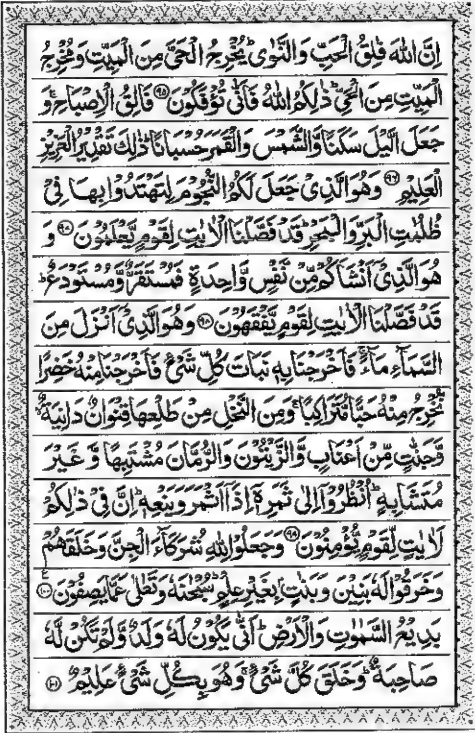 اِنَّ اللّٰهَ فٰلِقُ الْحَبِّ وَالنَّوٰى ؕ يُخْرِجُ الْحَىَّ مِنَ الْمَيِّتِ وَمُخْرِجُ
الْمَيِّتِ مِنَ الْحَىِّ ؕ ذٰلِكُمُ اللّٰهُ فَاَنّٰى تُؤْفَكُوْنَ ﴿۹۵﴾ فَالِقُ الْاِصْبَاحِ ۚ وَ
جَعَلَ الَّيْلَ سَكَنًا وَّالشَّمْسَ وَالْقَمَرَ حُسْبَانًا ؕ ذٰلِكَ تَقْدِيْرُ الْعَزِيْزِ
الْعَلِيْمِ ﴿۹۶﴾ وَهُوَ الَّذِىْ جَعَلَ لَكُمُ النُّجُوْمَ لِتَهْتَدُوْا بِهَا فِىْ
ظُلُمٰتِ الْبَرِّ وَالْبَحْرِ ؕ قَدْ فَصَّلْنَا الْاٰيٰتِ لِقَوْمٍ يَّعْلَمُوْنَ ﴿۹۷﴾ وَ
هُوَ الَّذِىْۤ اَنْشَاَكُمْ مِّنْ نَّفْسٍ وَّاحِدَةٍ فَمُسْتَقَرٌّ وَّمُسْتَوْدَعٌ ؕ
قَدْ فَصَّلْنَا الْاٰيٰتِ لِقَوْمٍ يَّفْقَهُوْنَ ﴿۹۸﴾ وَهُوَ الَّذِىْۤ اَنْزَلَ مِنَ
السَّمَآءِ مَآءً ۚ فَاَخْرَجْنَا بِهٖ نَبَاتَ كُلِّ شَىْءٍ فَاَخْرَجْنَا مِنْهُ خَضِرًا
نُّخْرِجُ مِنْهُ حَبًّا مُّتَرَاكِبًا ۚ وَمِنَ النَّخْلِ مِنْ طَلْعِهَا قِنْوَانٌ دَانِيَةٌ
وَّجَنّٰتٍ مِّنْ اَعْنَابٍ وَّالزَّيْتُوْنَ وَالرُّمَّانَ مُشْتَبِهًا وَّغَيْرَ
مُتَشَابِهٍ ؕ اُنْظُرُوْۤا اِلٰى ثَمَرِهٖۤ اِذَاۤ اَثْمَرَ وَيَنْعِهٖ ؕ اِنَّ فِىْ ذٰلِكُمْ
لَاٰيٰتٍ لِّقَوْمٍ يُّؤْمِنُوْنَ ﴿۹۹﴾ وَجَعَلُوْا لِلّٰهِ شُرَكَآءَ الْجِنَّ وَخَلَقَهُمْ
وَخَرَقُوْا لَهٗ بَنِيْنَ وَبَنٰتٍۭ بِغَيْرِ عِلْمٍ ؕ سُبْحٰنَهٗ وَتَعٰلٰى عَمَّا يَصِفُوْنَ ﴿۱۰۰﴾
بَدِيْعُ السَّمٰوٰتِ وَالْاَرْضِ ؕ اَنّٰى يَكُوْنُ لَهٗ وَلَدٌ وَّلَمْ تَكُنْ لَّهٗ
صَاحِبَةٌ ؕ وَخَلَقَ كُلَّ شَىْءٍ ۚ وَهُوَ بِكُلِّ شَىْءٍ عَلِيْمٌ ﴿۱۰۱﴾